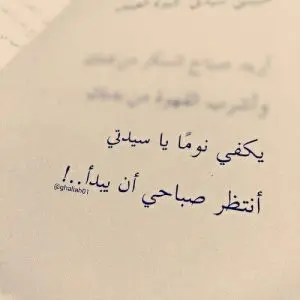 أريد صباح السكر من فمك
وأشرب القهوة من يدك
يكفي نومًا يا سيدتي
أنتظر صباحي أن يبدأ..!
@ghaliah01